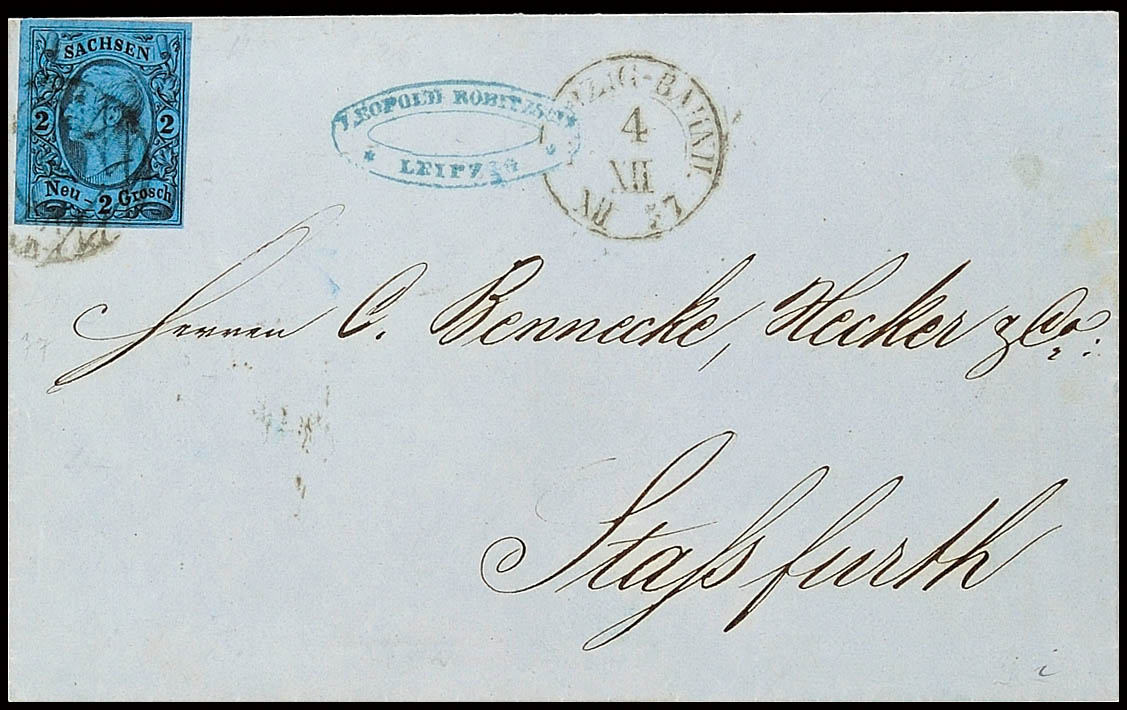 SACHSEN
2 2
Neu - 2 Grosch
LEOPOLD ROBITZSCH
LEIPZIG
LEIPZIG-BAHNH.
4
XII
57
Herren C. Bennecke, Hecker & Co:
Staßfurth